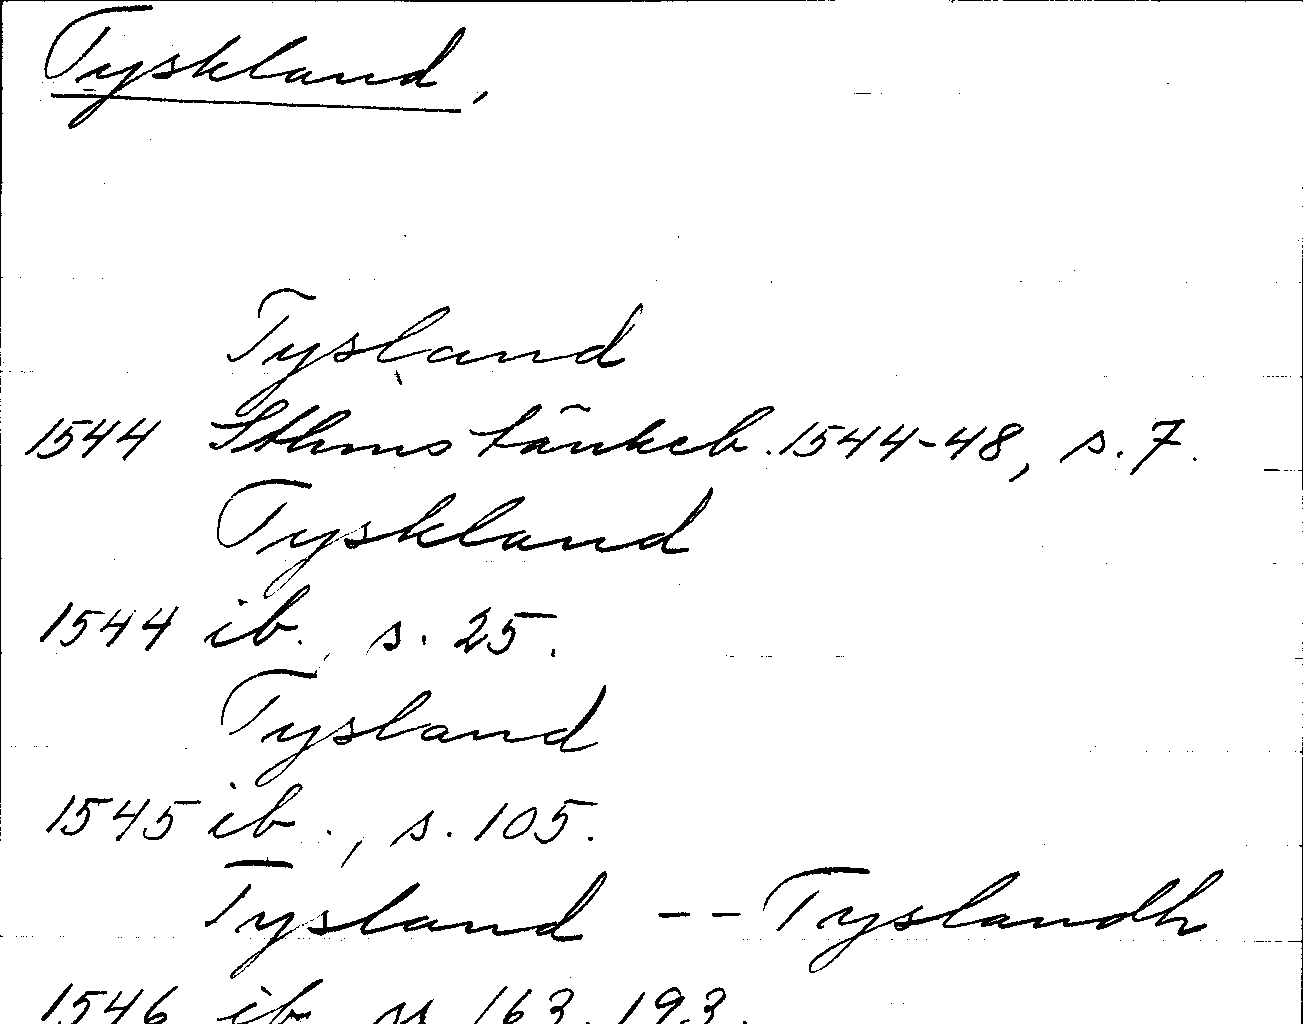 Tyskland,
Tysland
1544 Sthms tänkeb. 1544-48, s. 7.
Tyskland
1544 ib., s. 25.
Tysland
1545 ib., s. 105.
Tysland -- Tyslandh
1546 ib. ss 163, 193.